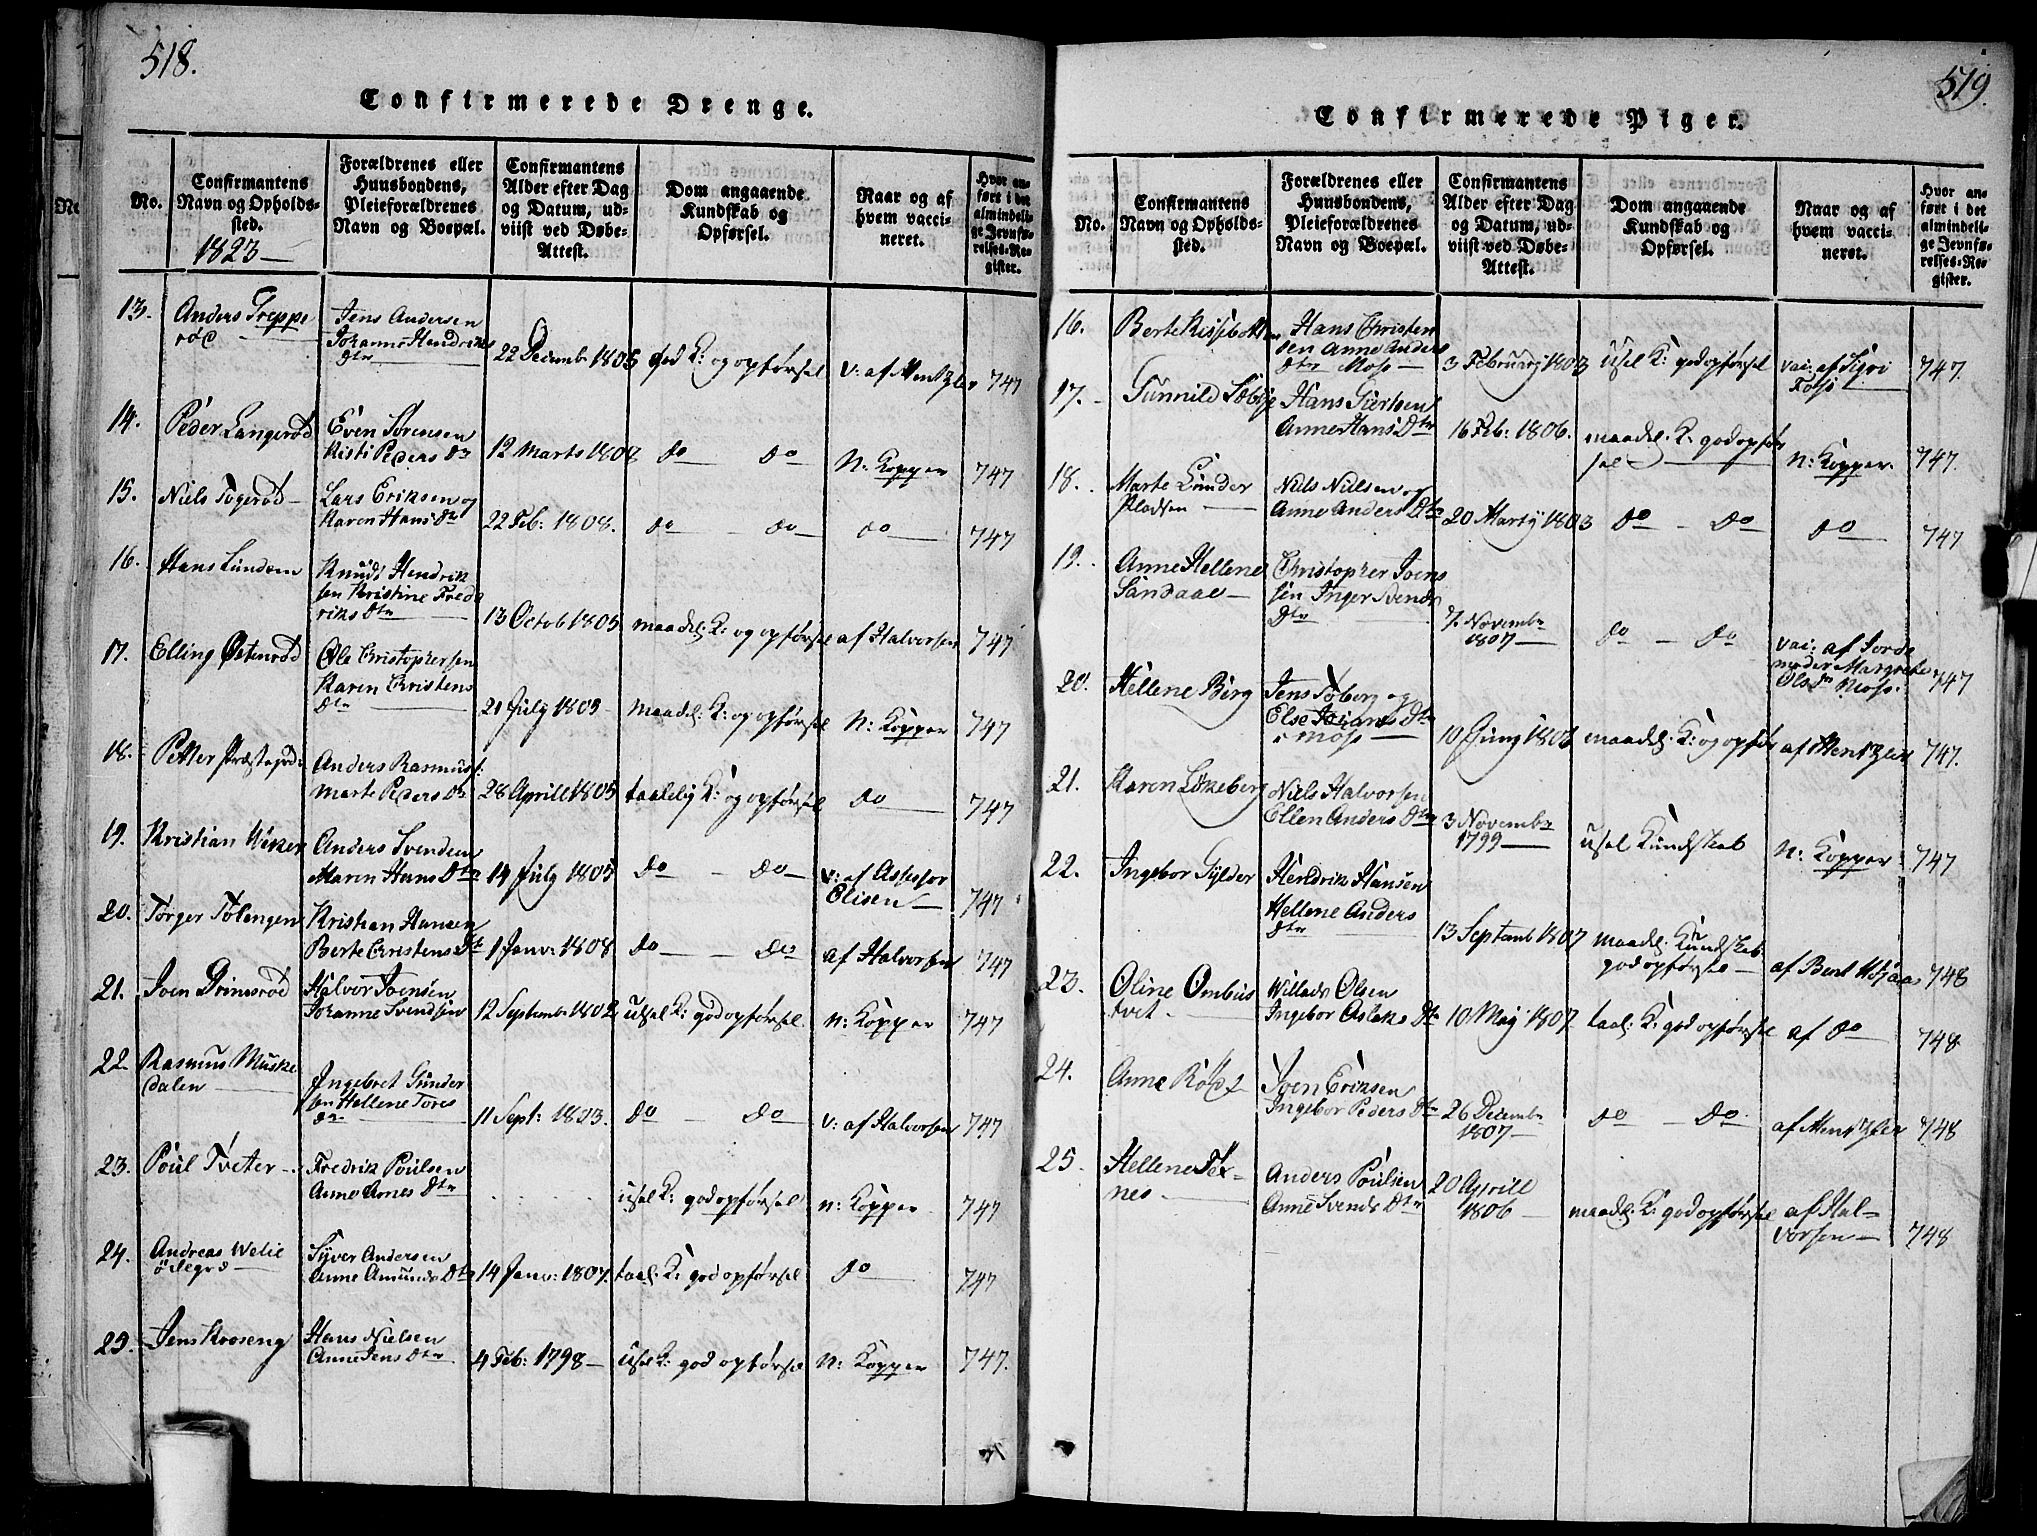 518.
Confirmerede Drenge.
No.
Confirmantens
Navn og Opholds-
sted.
1823
Forældrenes eller
Huusbondens,
Pleieforældrenes
Navn og Boepæl.
Confirmantens
Alder efter Dag
og Datum, ud-
viist ved Døbe-
Attest.
Dom angaaende
Kundskab og
Opførsel.
Naar og af
hvem vacci-
neret.
Hvor an-
ført i det
almindeli-
ge Jevnfø-
relses-Re-
gister.
13.
Anders Treppe
rød
Jens Andersen
Johanne Hendriks
dtr
22 Decembr 1805
god K: og opførsel
v: af Mentzler
747
14.
Peder Langerød
Even Sørensen
Kisti Peders Dr
12 Marts 1808
do do
n: Kopper
747
15.
Niels Togerød
Lars Eriksen og
Karen Hans Dr
22 Feb: 1808.
do do
do
747
16.
Hans Lundem
Knuds Hendrik
sen Kristine Fred
riks Dtr
13 Octob 1805
maadel: K: og opførsel
af Halvorsen
747
17.
Elling Østenrød
Ole Christophersen
Karen Christens
Dtr
21 July 1805
maadel: K: og opførsel
N: Kopper
747
18.
Petter
Anders Rasmuss:
Marte Peders Dr
28 Aprill 1805
taalelig K: og opførsel
do
747
19.
Kristian Wiker
Anders Svendsen
Maren Hans Dtr
14 July 1805
do do
v: af Assessor
Olisen
747
20.
Torger Tolengen
Kristian Hansen
Berte Christens Dtr
1 Janv: 1808
do do
af Halvorsen
747
21.
Joen Brimsrød
Halvor Joensen
Johanne Svendsen
12 Septembr 1802
ussel K: god opførsel
n: Kopper
747
22.
Rasmus Muske
dalen
Ingebret Gunder
sen Hellene Tores
Dr
11 Sept: 1803.
do do
v: af Halvorsen
747
23.
Poul Tveter
Fredrik Poulsen
Anne Arnes Dtr
usel K: god opførsel
n: Kopper
747
24.
Andreas Welie
ødegrd
Syver Andersen
Anne Amunds Dtr
14 Janv: 1807.
taal: K: god opførsel
do
747
25.
Jens Kroseng
Hans Nielsen
Anne Jens Dtr
4 Feb: 1798
usel K: god opførsel
n: Kopper
747.
519.
Confirmerede Piger.
No.
Confirmantens
Navn og Opholds-
sted.
Forældrenes eller
Huusbondens,
Pleieforældrenes
Navn og Boepæl.
Confirmantens
Alder efter Dag
og Datum, ud-
viist ved Døbe-
Attest.
Dom angaaende
Kundskab og
Opførsel.
Naar og af
hvem vacci-
neret.
Hvor an-
ført i det
almindeli-
ge Jevnfø-
relses-Re-
gister.
16.
Berte Rissebotten
Hans Christen
sen Anne Anders
Dtr Moss
3 February 1803
usel K: god opførsel
vai: af Sigri
Moss
747.
17.
Gunnild Sæbye
Hans Giertsen
Anne Hans Dtr
16 Feb: 1806.
maadel: K: god opfør
sel
n: Kopper.
747.
18.
Marte Lunder
Pladsen
Niels Nielsen og
Anne Anders Dtr
20 Marty 1803
do do
do
747
19.
Anne Hellene
Sandaae
Christopher Joens
sen Inger Svends
Dtr
7 Novembr
1807
do do
vai: af Jorde
moder Margrete
Ols Dr Moss.
747
20.
Hellene Berg
Jens Toberg og
Else Dtr
i Moss
10 Juny 1806
maadel: K: og opfør
af Mentzler
747.
21.
Karen Løkeberg
Niels Halvorsen
Ellen Anders Dtr
3 Novembr
1799
usel Kundskab
N: Kopper
747
22.
Ingebor Gylder
Hendrik Hansen
Hellene Anders
Dtr
13 Septemb 1807
maadel: Kundskab
god opførsel
af Bent
748
23.
Oline Ombus
tvet
Willads Olsen
Ingebor Aslaks Dtr
10 May 1807
taal: K: god opførsel
af do
748
24.
Anne
Sven Eriksen
Ingebor Peders Dtr
26 Decembr
1807
do do
af Mentzler
748
25.
Hellene Tex-
nes
Anders Poulsen
Anne Svends Dtr
20 Aprill
1806
maadl: K: god opførsel
af Hal-
vorsen
748